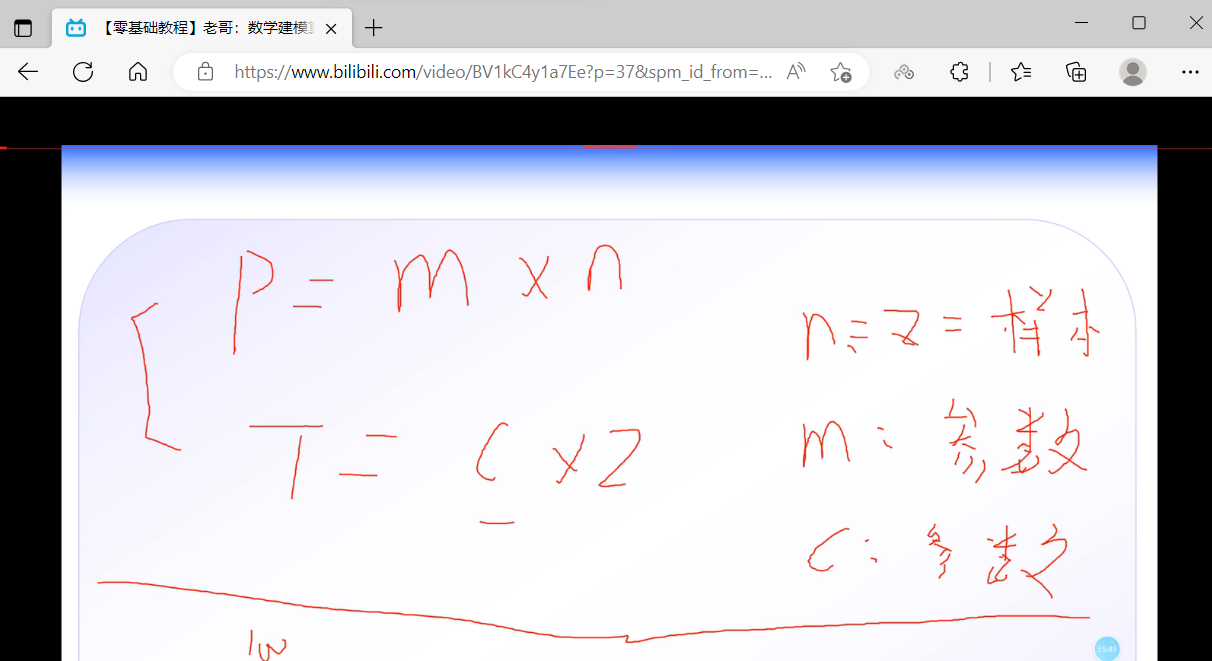 【零基础教程】老哥：数学建模
https://www.bilibili.com/video/BV1kC4y1a7Ee?p=37&spm_id_from=...
P = m x n
n = z = 样本
T = C x Z
m: 参数
C: 参数
100